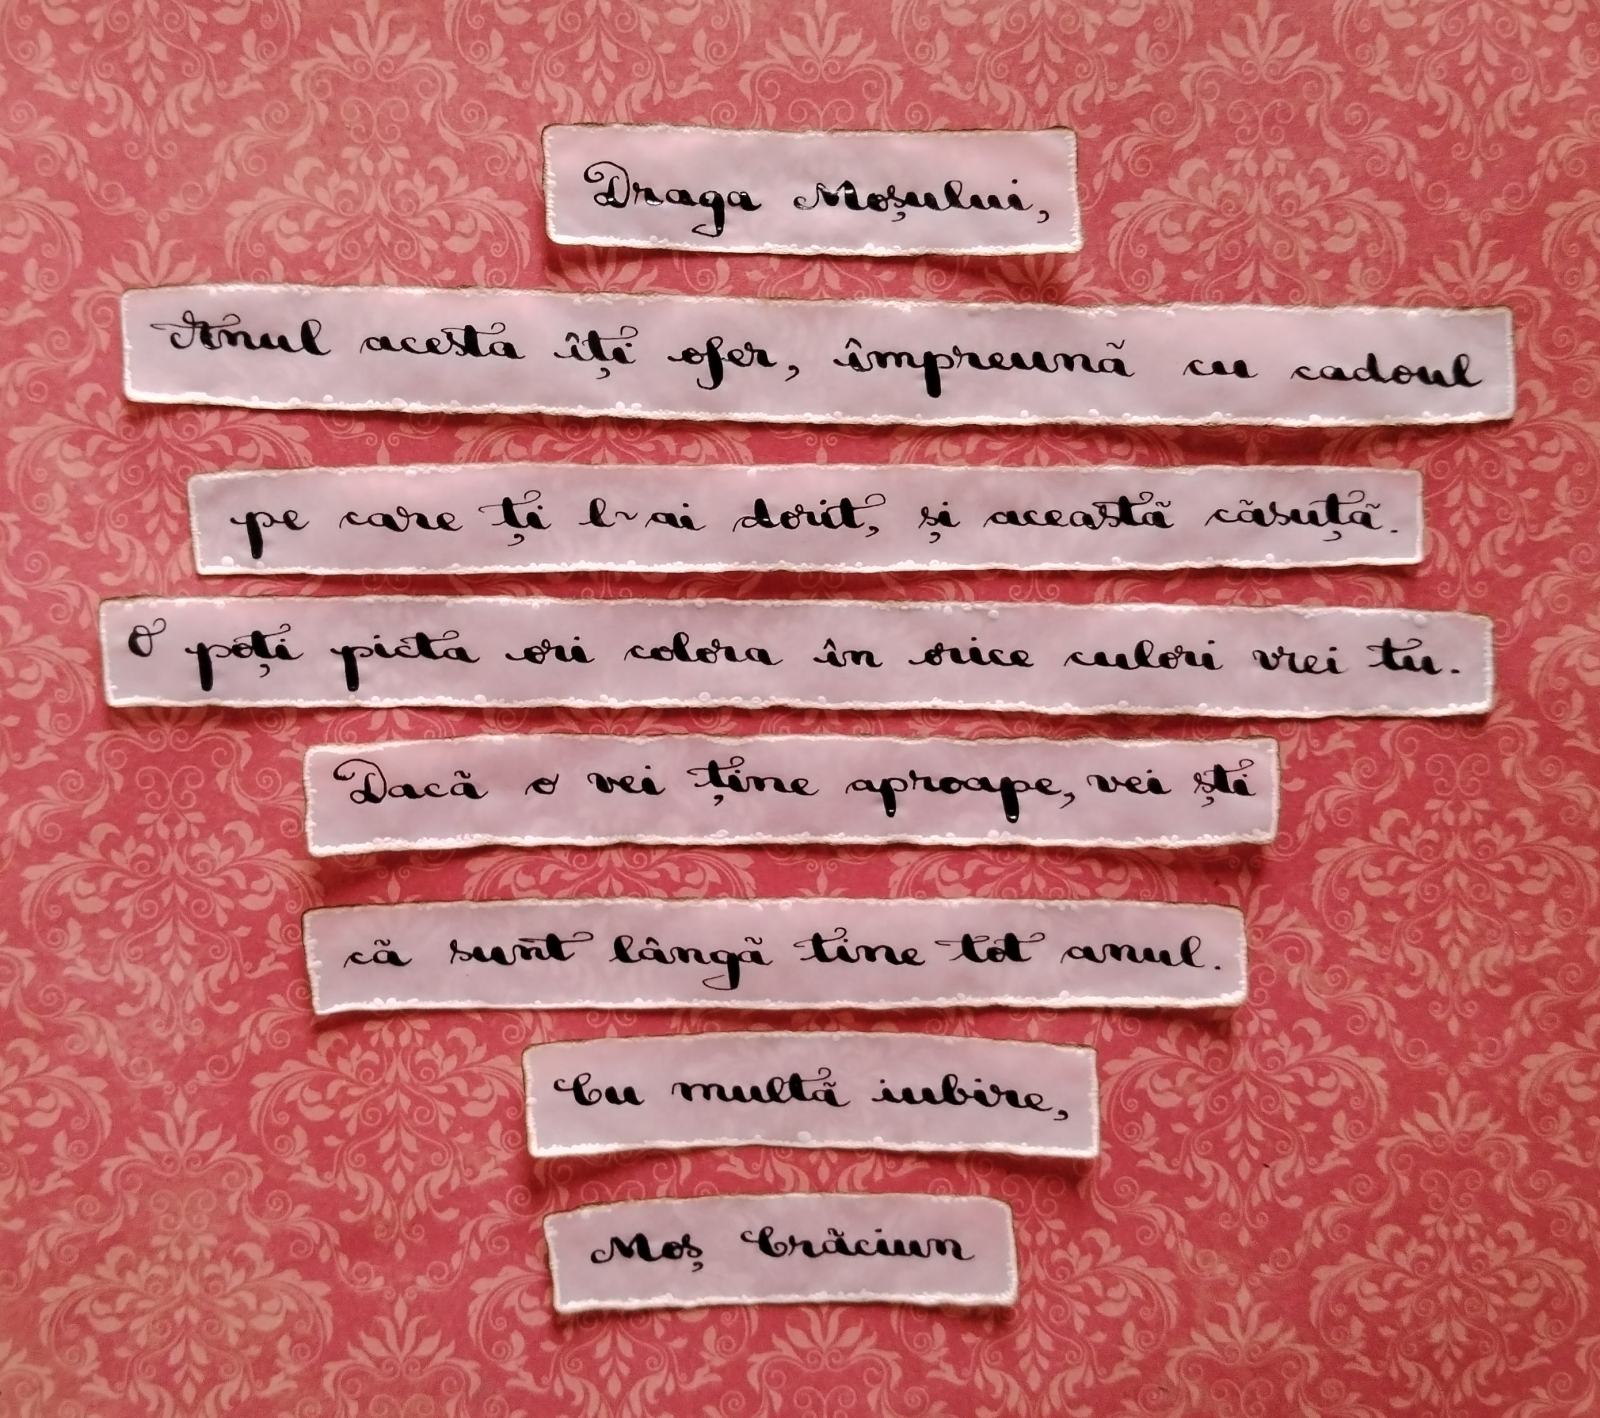 Draga Moșului,
Anul acesta îți ofer, împreună cu cadoul
pe care ți l-ai dorit, și această căsuță.
O poți picta ori colora în orice culori vrei tu.
Dacă o vei ține aproape, vei ști
că sunt lângă tine tot anul.
Cu multă iubire,
Moș Crăciun